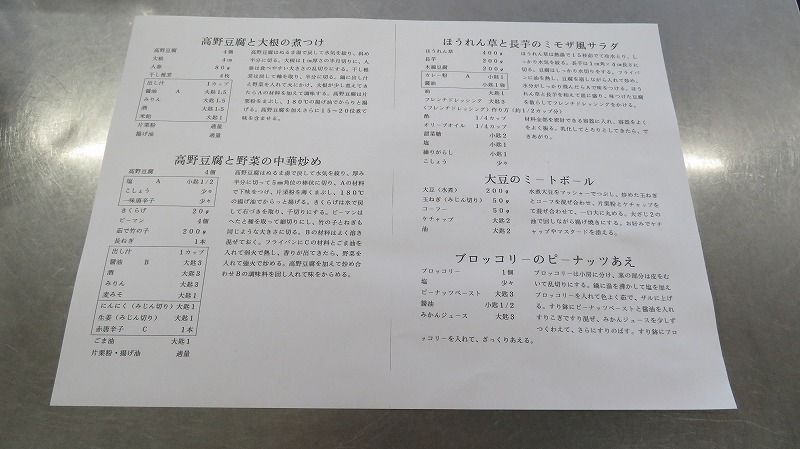 高野豆腐と大根の煮つけ
高野豆腐 4個
大根 4cm
人参 80g
干し椎茸 4枚
出し汁 1カップ
醤油 A 大匙1.5
みりん 大匙1.5
酒 大匙1.5
米飴 大匙1
片栗粉 適量
揚げ油 適量
高野豆腐はぬるま湯で戻して水気を絞り、斜め
半分に切る。大根は1cm厚さの半月切りに、人
参は食べやすい大きさの乱切りにする。干し椎
茸は戻して軸を取り、半分に切る。鍋に出し汁
と野菜を入れて火にかけ、大根が少し煮えてき
たらAの材料を加えて調味する。高野豆腐は片
栗粉をまぶし、180℃の揚げ油でからりと揚
げる。高野豆腐を加えさらに15～20位煮て
味を含ませる。
高野豆腐と野菜の中華炒め
高野豆腐 4個
塩 A 小匙1/2
こしょう 少々
一味唐辛子 少々
きくらげ 20g
ピーマン 4個
茹で竹の子 200g
長ねぎ 1本
出し汁 1カップ
醤油 B 大匙3
酒 大匙3
みりん 大匙3
麦みそ 大匙1
にんにく(みじん切り) 大匙1
生姜(みじん切り) 大匙1
赤唐辛子 C 1本
ごま油 大匙1
片栗粉・揚げ油 適量
高野豆腐はぬるま湯で戻して水気を絞り、厚み
半分に切って5mm角位の棒状に切り、Aの材料
で下味をつけ、片栗粉を薄くまぶし、180℃
の揚げ油でからっと揚げる。きくらげは水で戻
して石づきを取り、千切りにする。ピーマンは
へたと種を取って細切りにし、竹の子とねぎも
同じような大きさに切る。Bの材料はよく溶き
混ぜておく。フライパンにCの材料とごま油を
入れて弱火で熱し、香りが出てきたら、野菜を
入れて強火で炒める。高野豆腐を加えて炒め合
わせBの調味料を回し入れて味をからめる。
ほうれん草と長芋のミモザ風サラダ
ほうれん草 400g
長芋 200g
木綿豆腐 200g
カレー粉 A 小匙1
醤油 小匙1強
油 大匙1
フレンチドレッシング 大匙3
ほうれん草は熱湯で15秒茹でて冷水とり、し
っかり水気を絞る。長芋は1cm角×4cm長さに
切る。豆腐はしっかり水切りをする。フライパ
ンに油を熱し、豆腐を崩しながら入れて炒め、
水分がしっかり飛んだらAで味をつける。ほう
れん草と長芋を和えて器に盛り、味つけた豆腐
を散らしてフレンチドレッシングをかける。
(フレンチドレッシング)作り方(約1/2カップ分)
酢 1/4カップ
オリーブオイル 1/4カップ
甜菜糖 小匙2
塩 小匙1
練りがらし 小匙1
こしょう 少々
材料全部を密封できる容器に入れ、容器をよく
をよく振る。乳化してとろりとしてきたら、で
きあがり。
大豆のミートボール
大豆(水煮) 200g
玉ねぎ(みじん切り) 50g
コーフー 50g
ケチャップ 大匙2
油 大匙2
水煮大豆をマッシャーでつぶし、炒めた玉ねぎ
とコーフを混ぜ合わせ、片栗粉とケチャップをて
て混ぜ合わせて、一口大に丸める。大さじ2の
油で回しながら揚げ焼きにする。お好みでケチ
ャップやマスタードを添える。
ブロッコリーのピーナッツあえ
ブロッコリー 1個
塩 少々
ピーナッツペースト 大匙3
醤油 小匙1/2
みかんジュース 大匙3
ブロッコリーは小房に分け、茎の部分は皮をむ
いて乱切りにする。鍋に湯を沸かして塩を加え
ブロッコリーを入れて色よく茹で、ザルに上げ
る。すり鉢にピーナッツペーストと醤油を入れ
すりこぎですり混ぜ、みかんジュースを少しず
つくわえて、さらにすりのばす。すり鉢にブロ
ッコリーを入れて、ざっくりあえる。